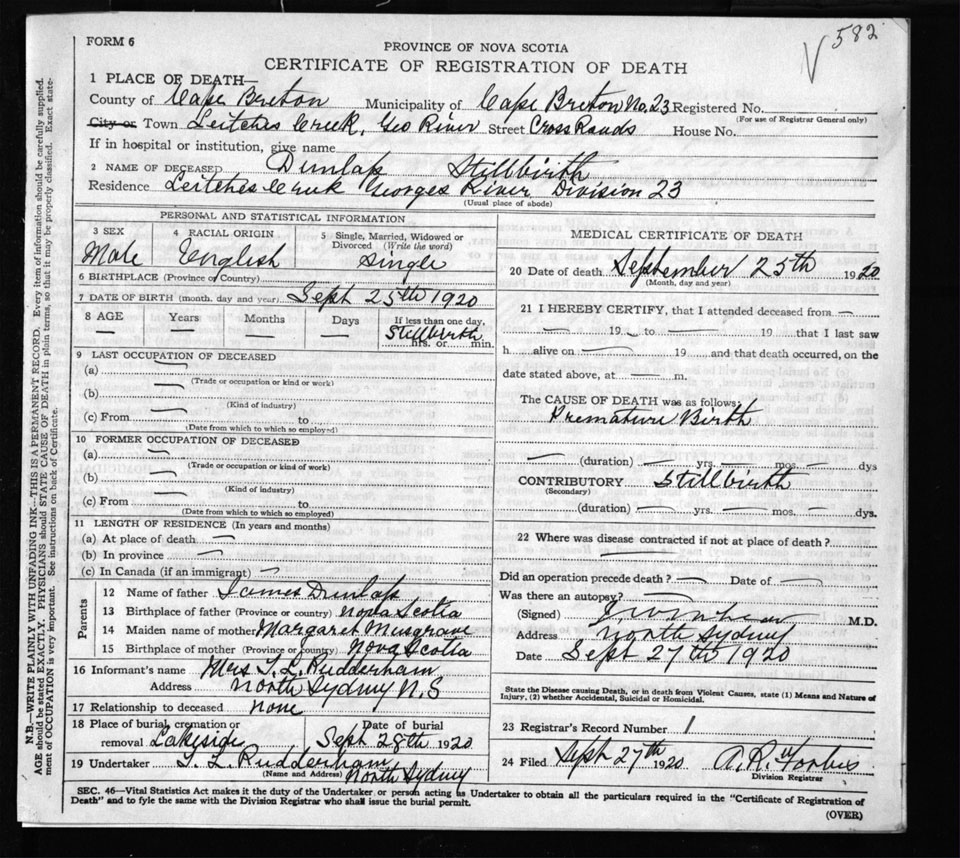 FORM 6
582
PROVINCE OF NOVA SCOTIA
CERTIFICATE OF REGISTRATION OF DEATH
1 PLACE OF DEATH—
County of Cape Breton Municipality of Cape Breton No. 23 Registered No.
(For use of Registrar General only)
City or Town Leitches Creek, Geo River Street Cross Roads House No.
If in hospital or institution, give name
2 NAME OF DECEASED Dunlap Stillbirth
Residence Leitches Creek Georges River Division 23
(Usual place of abode)
PERSONAL AND STATISTICAL INFORMATION
3 SEX Male
4 RACIAL ORIGIN English
5 Single, Married, Widowed or Divorced (Write the word) Single
6 BIRTHPLACE (Province or Country)
7 DATE OF BIRTH (month, day and year) Sept 25th 1920
8 AGE — Years — Months — Days — If less than one day, Stillbirth hrs. or min.
9 LAST OCCUPATION OF DECEASED
(a) —
(Trade or occupation or kind or work)
(b) —
(Kind of industry)
(c) From — to
(Date from which to which so employed)
10 FORMER OCCUPATION OF DECEASED
(a) —
(Trade or occupation or kind of work)
(b) —
(Kind of industry)
(c) From — to
(Date from which to which so employed)
11 LENGTH OF RESIDENCE (In years and months)
(a) At place of death —
(b) In province —
(c) In Canada (if an immigrant) —
Parents
12 Name of father James Dunlap
13 Birthplace of father (Province or country) Nova Scotia
14 Maiden name of mother Margaret Musgrave
15 Birthplace of mother (Province or country) Nova Scotia
16 Informant's name Mrs T. L. Rudderham
Address North Sydney N.S
17 Relationship to deceased None
18 Place of burial, cremation or removal Lakeside Date of burial Sept 28th 1920
19 Undertaker T. L. Rudderham
(Name and Address) North Sydney
MEDICAL CERTIFICATE OF DEATH
20 Date of death September 25th 1920
(Month, day and year)
21 I HEREBY CERTIFY, that I attended deceased from —
— 19 — to — 19 that I last saw
h alive on — 19 and that death occurred, on the
date stated above, at — m.
The CAUSE OF DEATH was as follows:
Premature Birth
— (duration) — yrs. — mos. — dys
CONTRIBUTORY Stillbirth
(Secondary)
(duration) — yrs. — mos. — dys.
22 Where was disease contracted if not at place of death?
—
Did an operation precede death? — Date of —
Was there an autopsy? —
(Signed) M.D.
Address North Sydney
Date Sept 27th 1920
State the Disease causing Death, or in death from Violent Causes, state (1) Means and Nature of
Injury, (2) whether Accidental, Suicidal or Homicidal.
23 Registrar's Record Number 1
24 Filed Sept 27th 1920 A. R. Forbes
Division Registrar
SEC. 46—Vital Statistics Act makes it the duty of the Undertaker or person acting as Undertaker to obtain all the particulars required in the "Certificate of Registration of
Death" and to fyle the same with the Division Registrar who shall issue the burial permit.
(OVER)
N.B.—WRITE PLAINLY WITH UNFADING INK—THIS IS A PERMANENT RECORD. Every item of information should be carefully supplied.
AGE should be stated EXACTLY. PHYSICIANS should STATE CAUSE OF DEATH in plain terms, so that it may be properly classified. Exact state-
ment of OCCUPATION is very important. See instructions on back of Certificate.